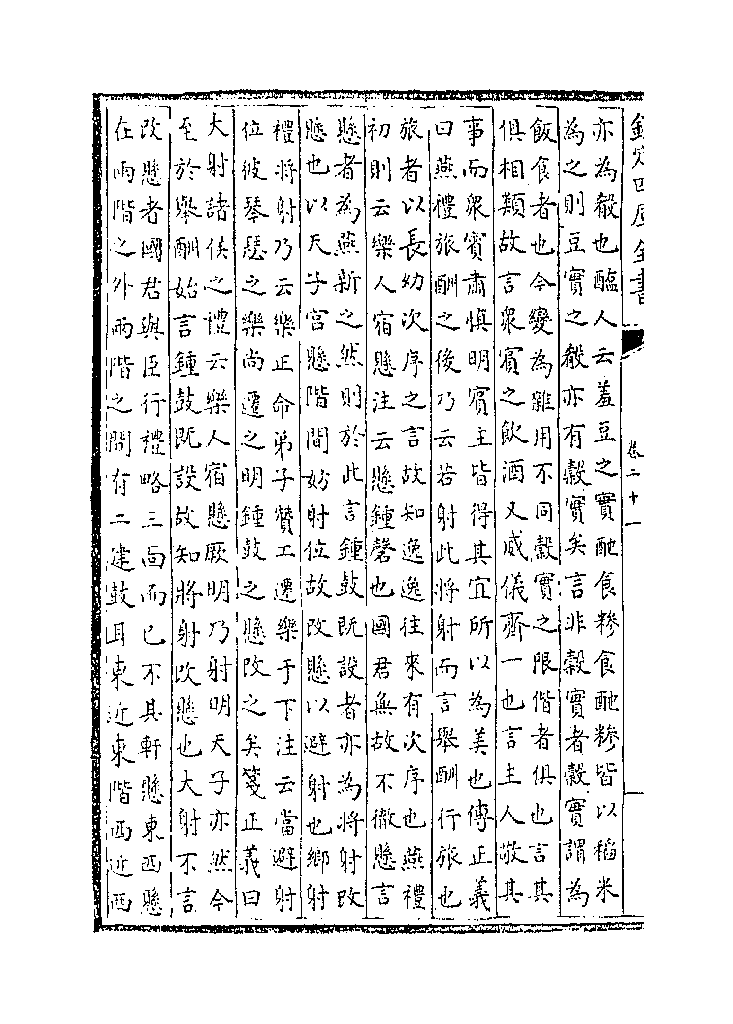 欽定四庫全書
卷二十一
亦為殽也醢人云羞豆之實酏食糝食酏糝皆以稻米
為之則豆實之殽亦有穀實矣言非穀實者穀實謂為
飯食者也今變為雜用不同穀實之限偕者俱也言其
俱相類故言眾賓之飲酒又威儀齊一也言主人敬其
事而眾賓肅慎明賓主皆得其宜所以為美也傳正義
曰燕禮旅酬之後乃云若射此將射而言舉酬行旅也
旅者以長幼次序之言故知逸逸往來有次序也燕禮
初則云樂人宿懸注云懸鍾磬也國君無故不徹懸言
懸者為燕新之然則於此言鍾鼓既設者亦為將射改
懸也以天子宮懸階間妨射位故改懸以避射也鄉射
禮將射乃云樂正命弟子贊工遷樂于下注云當避射
位彼琴瑟之樂尚遷之明鍾鼓之懸改之矣箋正義曰
大射諸侯之禮云樂人宿懸厥明乃射明天子亦然今
至於舉酬始言鍾鼓既設故知將射改懸也大射不言
改懸者國君與臣行禮略三面而已不具軒懸東西懸
在兩階之外兩階之間有二建鼓耳東近東階西近西